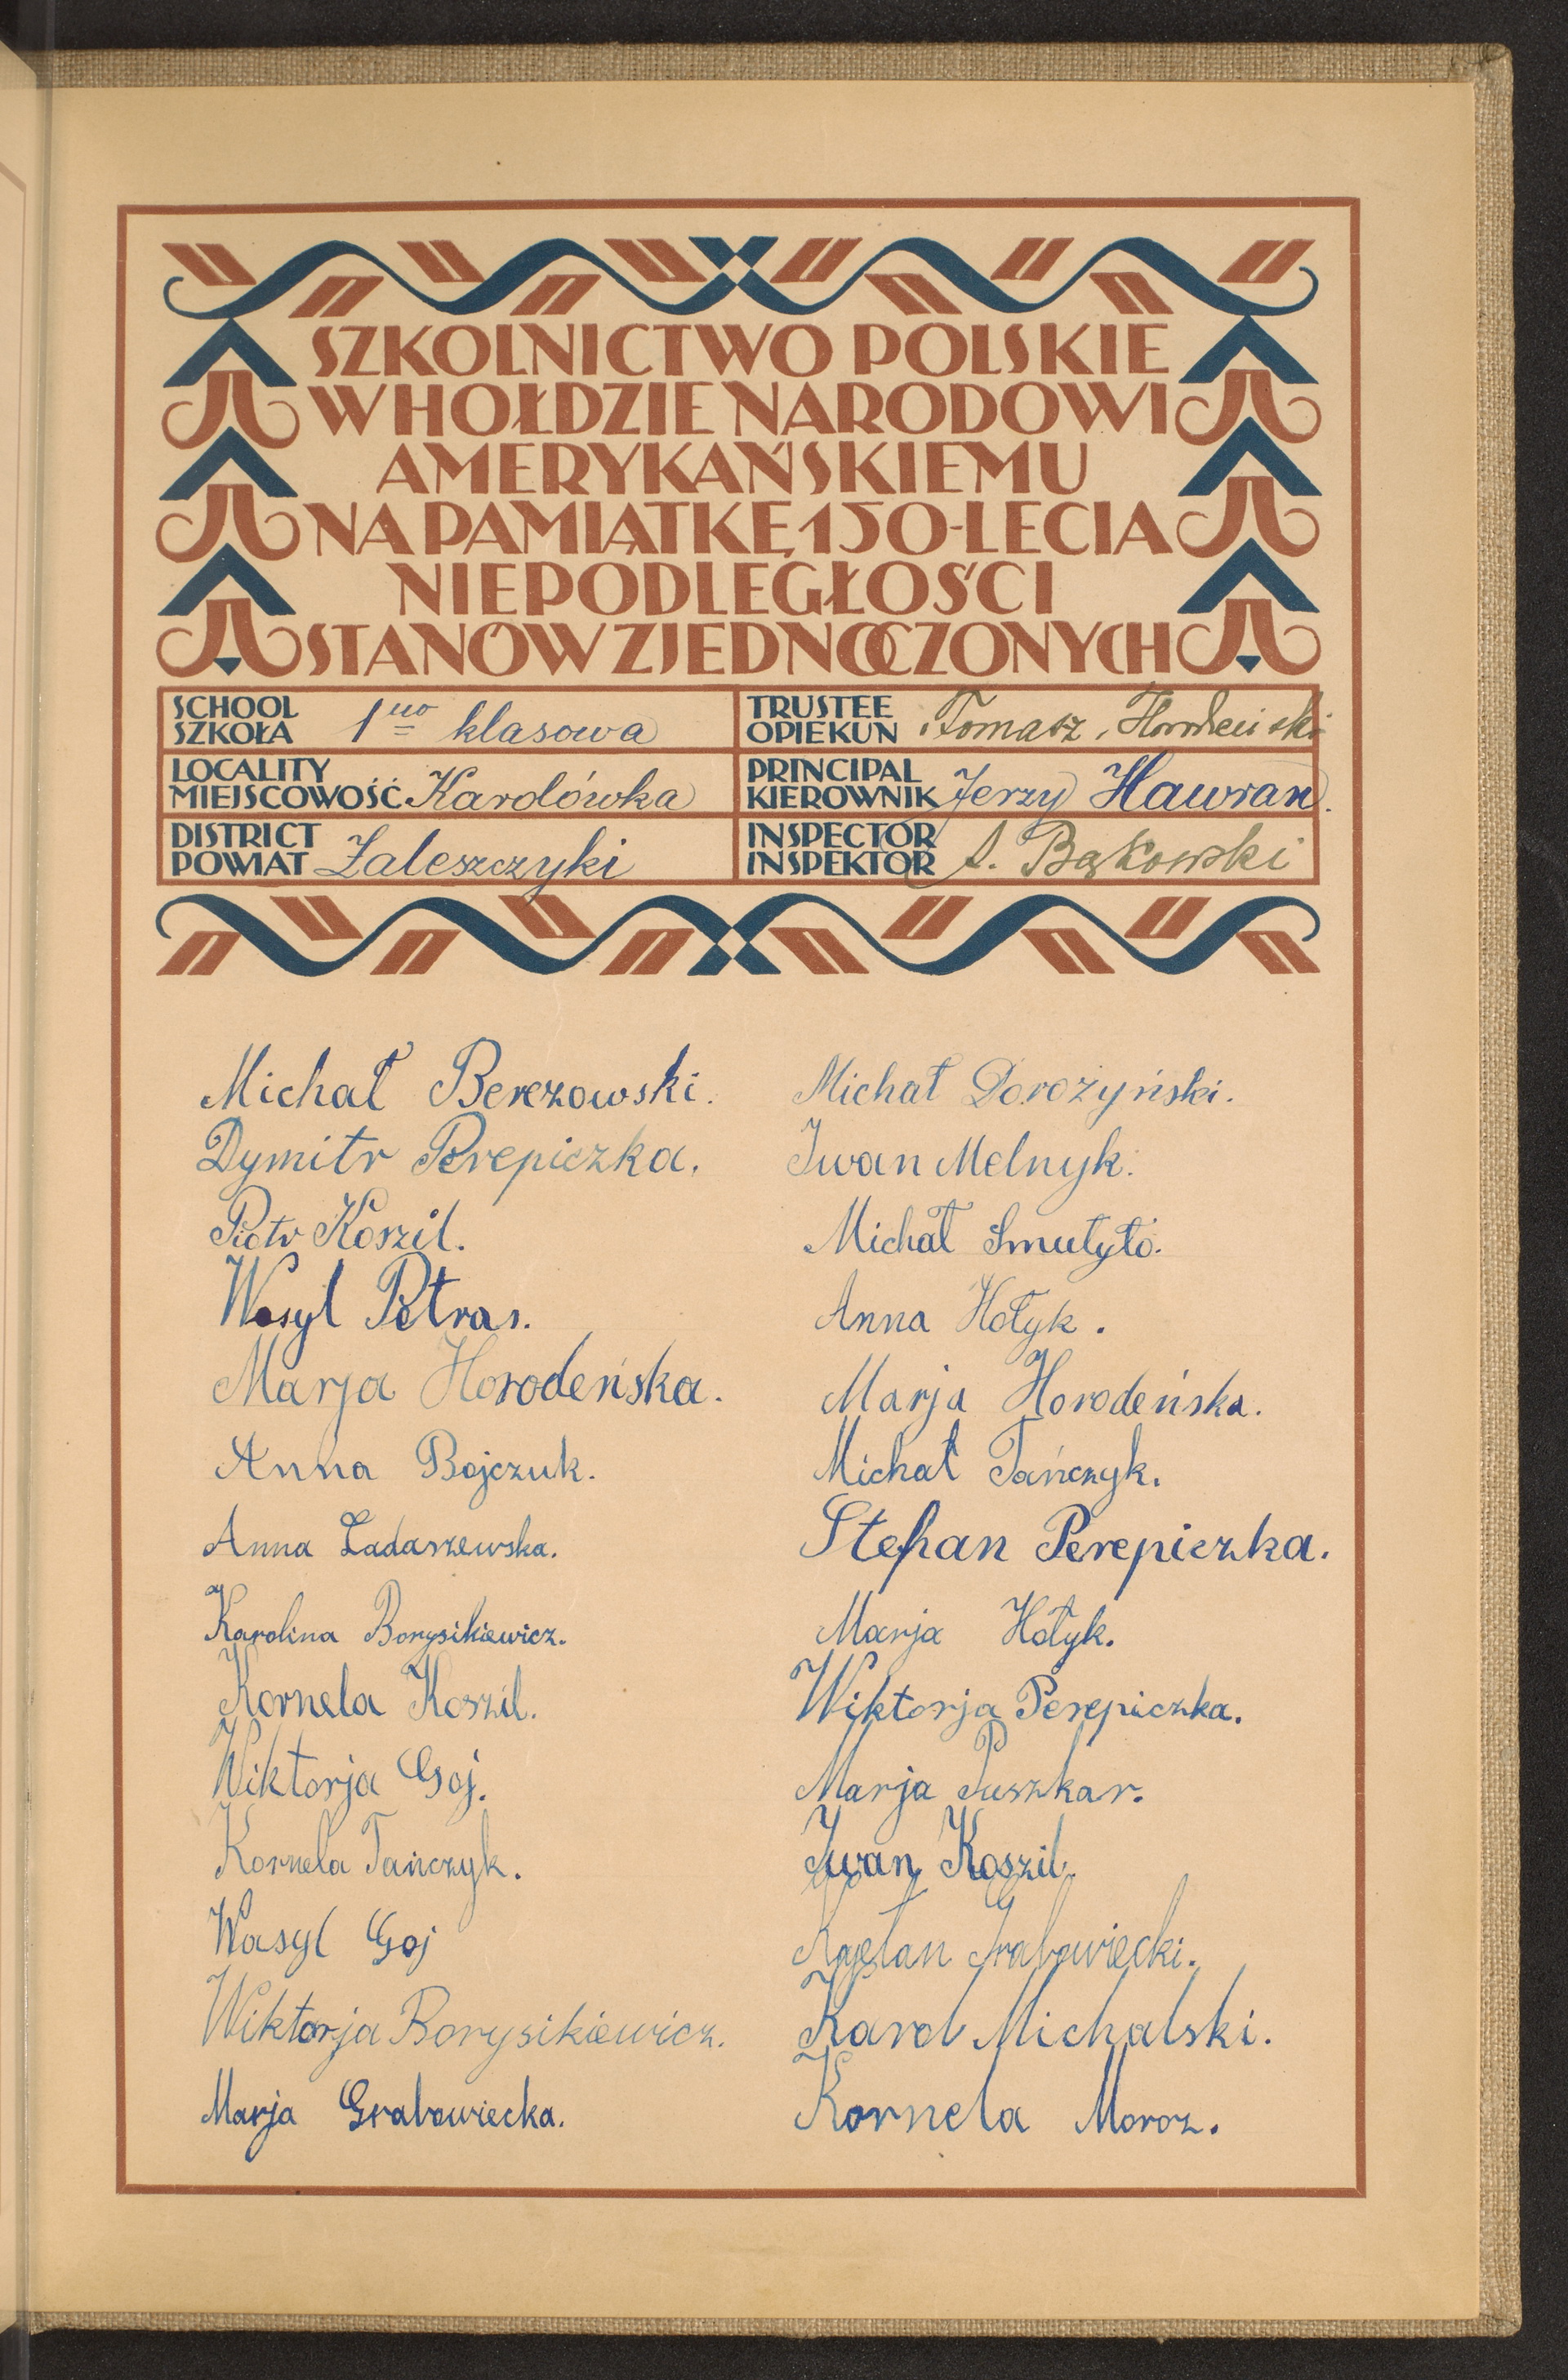 SZKOLNICTWO POLSKIE
W HOŁDZIE NARODOWI
AMERYKAŃSKIEMU
NA PAMIĄTKĘ 150-LECIA
NIEPODLEGŁOŚCI
STANÓW ZJEDNOCZONYCH
SCHOOL
SZKOŁA 1no klasowa
TRUSTEE
OPIEKUN Tomasz
LOCALITY
MIEJSCOWOŚĆ Karolówka
PRINCIPAL
KIEROWNIK Jerzy Hawran.
DISTRICT
POWIAT Zaleszczyki
INSPECTOR
INSPEKTOR Bąkowski
Michał Berezowski.
Dymitr Perepiczka.
Piotr Koszil.
Wasyl Petras.
Marja Horodeńska.
Anna Bojczuk.
Anna Ladaszewska.
Karolina Borysikiewicz.
Kornela Koszil.
Wiktorja Goj.
Kornela Tańczyk.
Wasyl Goj
Wiktorja Borysikiewicz.
Marja Grabowiecka.
Michał Dorożyński.
Iwan Melnyk.
Michał Smutyło.
Anna Hołyk.
Marja Horodeńska.
Michał Tańczyk.
Stefan Perepiczka.
Marja Hołyk.
Wiktorja Perepiczka.
Marja Puszkar.
Iwan Koszil.
Kajetan Grabowiecki.
Karol Michalski.
Kornela Moroz.